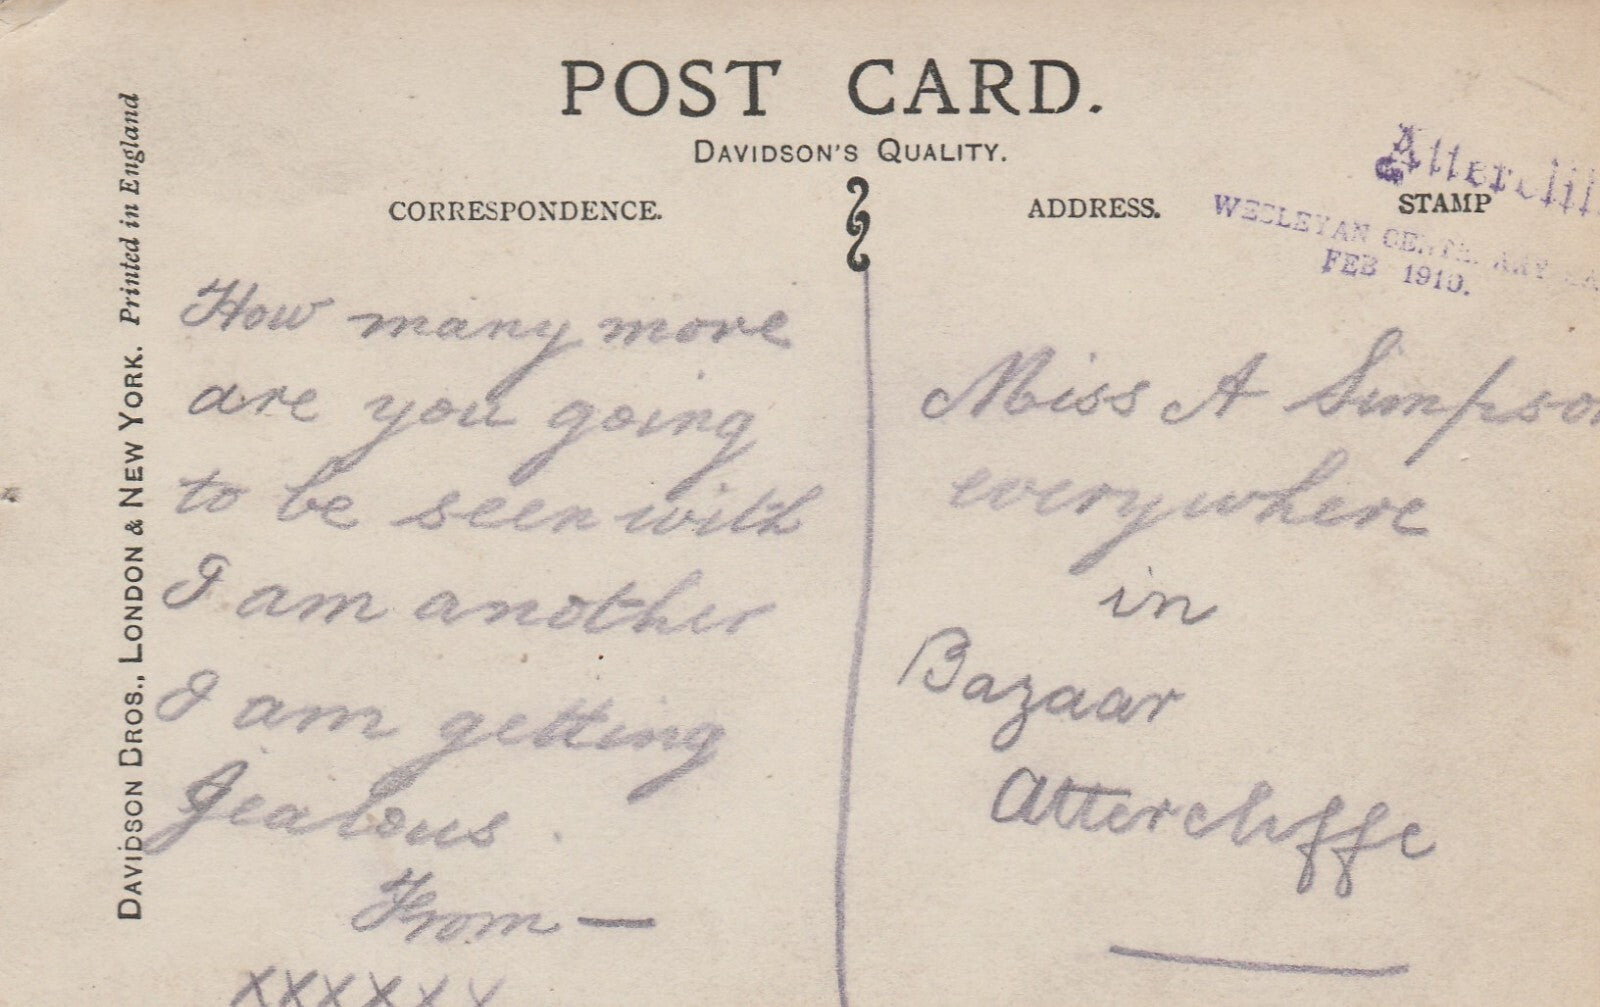 POST CARD.
DAVIDSON'S QUALITY.
CORRESPONDENCE.
ADDRESS.
STAMP
Attercliff
WESLEYAN CENTENARY BA
FEB 1910.
DAVIDSON BROS., LONDON & NEW YORK. Printed in England
How many more
are you going
to be seen with
I am another
I am getting
Jealous.
From —
xxxxxx
Miss A Simpson
everywhere
in
Bazaar
Attercliffe